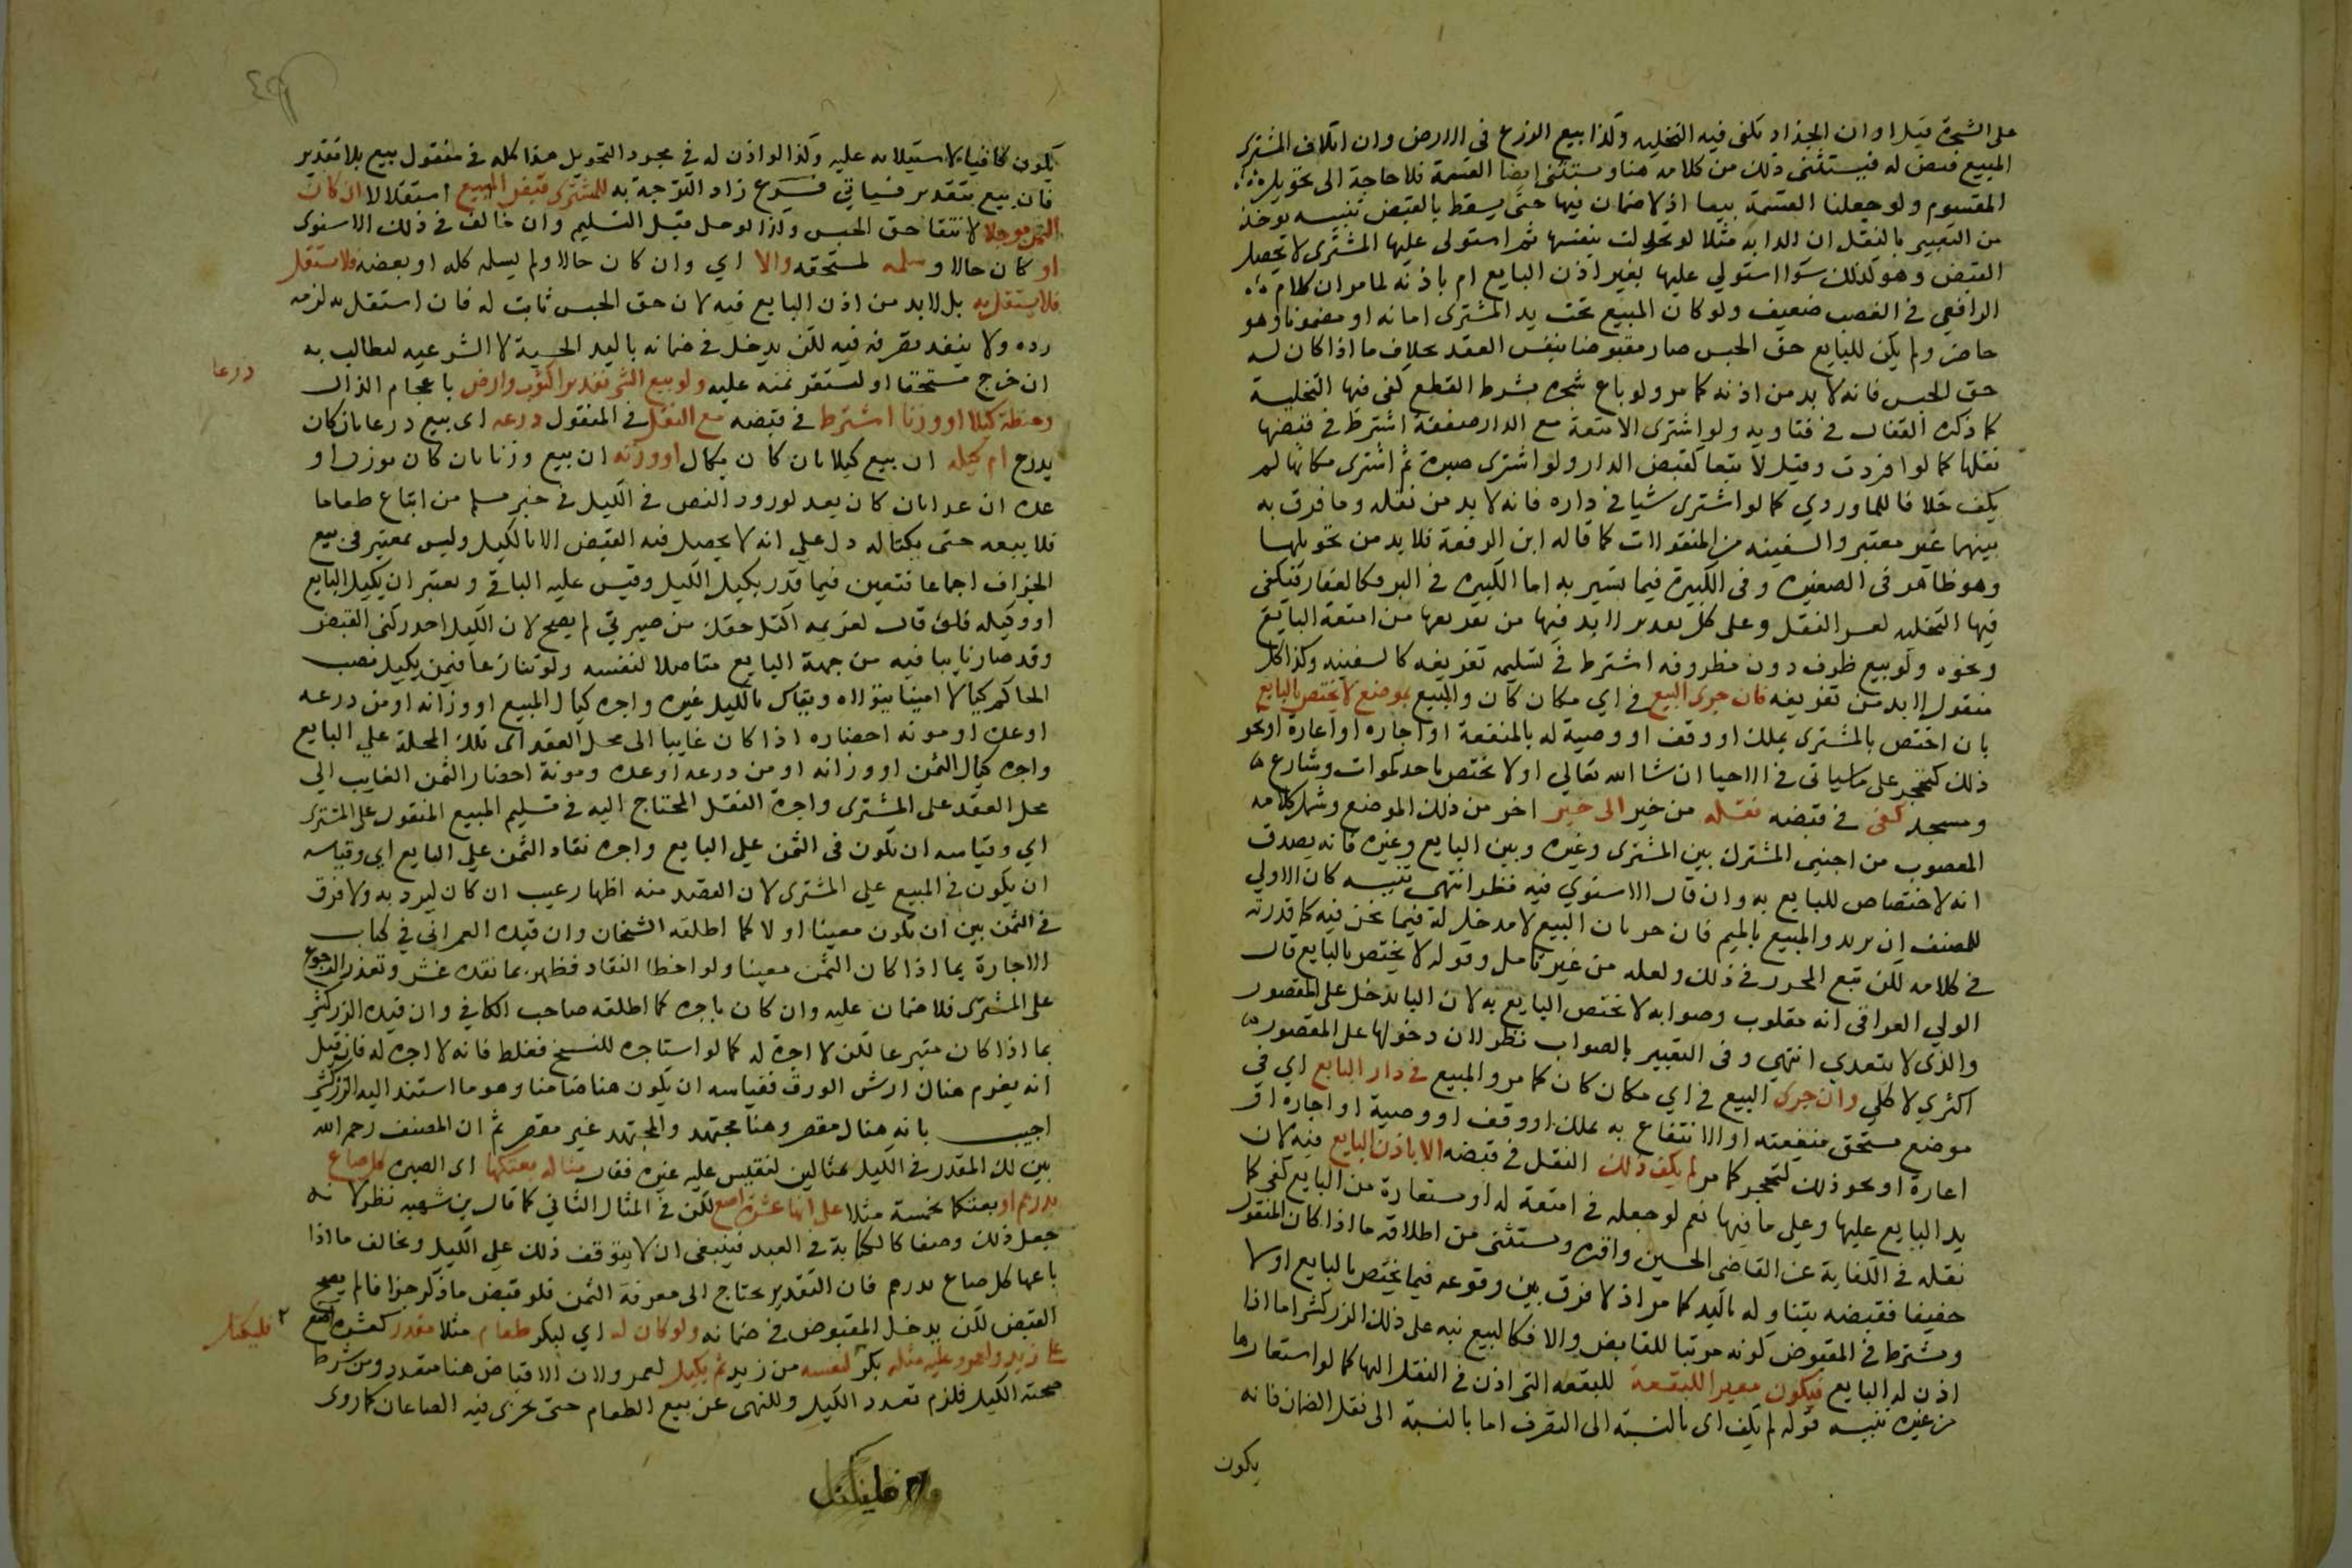 على الشجرة قبل اوان الجذاذ تكفى فيه التخليه وكذا بيع الزرع فى الارض وان اتلاف المشترى
المبيع قبض له فيستثنى ذلك من كلامه هنا ويستثنى ايضا القسمة فلا حاجة الى تحويل
المقسوم ولو جعلنا القسمة بيعا اذ لا ضمان فيها حتى يسقط بالقبض تنبيه يوخذ
من التعبير بالنقل ان الدابه مثلا لو تحولت بنفسها ثم استولى عليها المشترى لا يحصل
القبض وهو كذلك سوا استولي عليها بغير اذن البايع ام باذنه لما مر ان كلام
الرافعي في الغصب ضعيف ولو كان المبيع تحت يد المشترى امانه او مضمونا وهو
حاضر ولم يكن للبايع حق الحبس صار مقبوضا بنفس العقد بخلاف ما اذا كان له
حق الحبس فانه لا بد من اذنه كما مر ولو باع شجره بشرط القطع كفى فيها التخلية
كما ذكره القفال في فتاويه ولو اشترى الامتعة مع الدار صفقة اشترط في قبضها
نقلها كما لو افردت وقيل لا تبعا لقبض الدار ولو اشترى صبرة ثم اشترى مكانها لم
يكف خلافا للماوردي كما لو اشترى شيا في داره فانه لا بد من نقله وما فرق به
بينهما غير معتبر والسفينه من المنقولات كما قاله ابن الرفعة فلا بد من تحويلها
وهو ظاهر فى الصغيره وفى الكبيرة فيما تسير به اما الكبيره في البر فكالعقار فيكفى
فيها التخليه لعسر النقل وعلى كل تقدير لا بد فيها من تفريغها من امتعة البايع
ونحوه ولو بيع ظرف دون مظروفه اشترط في تسليمه تفريغه كالسفينه وكذا كل
منقول لا بد من تفريغه فان جرى البيع في اي مكان كان والمبيع بموضع لا يختص بالبايع
بان اختص بالمشترى بملك او وقف او وصية له بالمنفعة او اجاره او اعارة او نحو
ذلك كتحجر على ما سياتى في الاحيا ان شا الله تعالي او لا يختص باحد كموات وشارع
ومسجد كفى في قبضه نقله من حيز الى حيز اخر من ذلك الموضع وشمل كلامه
المغصوب من اجنبى المشترك بين المشترى وغيره وبين البايع وغيره فانه يصدق
انه لا اختصاص للبايع به وان قال الاسنوي فيه نظر انتهى تنبيه كان الاولي
للمصنف ان يريد والمبيع بالميم فان جريان البيع لا مدخل له فيما نحن فيه كما قدرته
في كلامه لكن تبع المحرر في ذلك ولعله من غير تامل وقوله لا يختص بالبايع قال
الولي العراقى انه مقلوب وصوابه لا يختص البايع به لان البا تدخل على المقصور
والذى لا يتعدى انتهي وفى التعبير بالصواب نظر لان دخولها على المقصور
اكثري لا كلي وان جرى البيع في اي مكان كان كما مر والمبيع في دار البايع اي في
موضع مستحق منفعته او الانتفاع به بملك او وقف او وصية او اجارة او
اعارة او نحو ذلك كتحجر كما مر لم يكف ذلك النقل في قبضه الا باذن البايع فيه لان
يد البايع عليها وعلى ما فيها نعم لو جعله في امتعة له او مستعارة من البايع كفى كما
نقله في الكفاية عن القاضى الحسين واقره ويستثنى من اطلاقه ما اذا كان المنقول
خفيفا فقبضه بتناوله باليد كما مر اذ لا فرق بين وقوعه فيما يختص بالبايع او لا
ويشترط في المقبوض كونه مرتبا للقابض والا فكالبيع نبه على ذلك الزركشى اما اذا
اذن له البايع فيكون معيرا للبقعة للبقعه التى اذن في النقل اليها كما لو استعارها
من غيره تنبيه قوله لم يكف اى بالنسبة الى التصرف اما بالنسبة الى نقل الضمان فانه
يكون
يكون كافيا لاستيلايه عليه وكذا لو اذن له في مجرد التحويل هذا كله في منقول بيع بلا تقدير
فان بيع بتقدير فسياتي فرع زاد الترجمة به للمشترى قبض المبيع استقلالا ان كان
الثمن موجلا لانتفا حق الحبس وكذا لو حل قبل التسليم وان خالف في ذلك الاسنوى
او كان حالا وسلمه لمستحقه والا اي وان كان حالا ولم يسلم كله او بعضه فلا يستقل
فلا يستقل به بل لا بد من اذن البايع فيه لان حق الحبس ثابت له فان استقل به لزمه
رده ولا ينفذ تصرفه فيه لكن يدخل في ضمانه باليد الحسية لا الشرعيه ليطالب به
ان خرج مستحقا او ليستقر ثمنه عليه ولو بيع الشى تقديرا كثوب وارض باعجام الذال
درعا
وحنطة كيلا او وزنا اشترط في قبضه مع النقل في المنقول درعه اى بيع درعا بان كان
يدرع ام كيله ان بيع كيلا بان كان يكال او وزنه ان بيع وزنا بان كان يوزن او
عده ان عدا بان كان يعد لورود النص في الكيل في خبر مسلم من ابتاع طعاما
فلا يبعه حتى يكتاله دل علي انه لا يحصل فيه القبض الا بالكيل وليس بمعتبر فى بيع
الجزاف اجماعا فتعين فيما قدر بكيل الكيل وقيس عليه الباقي ويعتبر ان يكيل البايع
او وكيله فلو قال لغريمه اكتل حقك من صبرتي لم يصح لان الكيل احد ركنى القبض
وقد صار نايبا فيه من جهة البايع متاصلا لنفسه ولو تنازعا فيمن يكيل نصب
الحاكم كيالا امينا يتولاه ويقاس بالكيل غيره واجره كيال المبيع او وزانه او من درعه
او عده او مونه احضاره اذا كان غايبا الى محل العقد اى تلك المحلة علي البايع
واجره كيال الثمن او وزانه او من درعه او عده ومونة احضار الثمن الغايب الي
محل العقد على المشترى واجرة النقل المحتاج اليه في تسليم المبيع المنقول على المشترى
اي وقياسه ان يكون فى الثمن علي البايع واجره نقاد الثمن علي البايع اي وقياسه
ان يكون في المبيع علي المشترى لان القصد منه اظهار عيب ان كان ليرد به ولا فرق
في الثمن بين ان يكون معينا او لا كما اطلقه الشيخان وان قيده العمراني في كتاب
الاجارة بما اذا كان الثمن معينا ولو اخطا النقاد فظهر بما نقده غش وتعذر الرجوع
على المشترى فلا ضمان عليه وان كان باجره كما اطلقه صاحب الكافي وان قيده الزركشى
بما اذا كان متبرعا لكن لا اجرة له كما لو استاجره للنسخ فغلط فانه لا اجره له فان قيل
انه يغرم هناك ارش الورق فقياسه ان يكون هنا ضامنا وهو ما استند اليه الزركشى
اجيب بانه هناك مقصر وهنا مجتهد والمجتهد غير مقصر ثم ان المصنف رحمه الله
بين لك المقدر في الكيل بمثالين لتقيس عليه غيره فقال مثاله بعتكها اى الصبره كل صاع
بدرهم او بعتكها بخمسة مثلا على انها عشرة اصع لكن في المثال الثاني كما قال بن شهبه نظر لانه
جعل ذلك وصفا كالكتابة في العبد فينبغى ان لا يتوقف ذلك على الكيل ويخالف ما اذا
باعها كل صاع بدرهم فان التقدير يحتاج الى معرفة الثمن فلو قبض ما ذكر جزافا لم يصح
القبض لكن يدخل المقبوض في ضمانه ولو كان له اي لبكر طعام مثلا مقدر كعشرة اصع
على زيد ولعمرو عليه مثله بكر لنفسه من زيد ثم يكيل لعمرو لان الاقباض هنا متعدد ومن شرط
فليكتل
صحته الكيل فلزم تعدد الكيل وللنهى عن بيع الطعام حتى يجرى فيه الصاعان كما روى
فليكتل